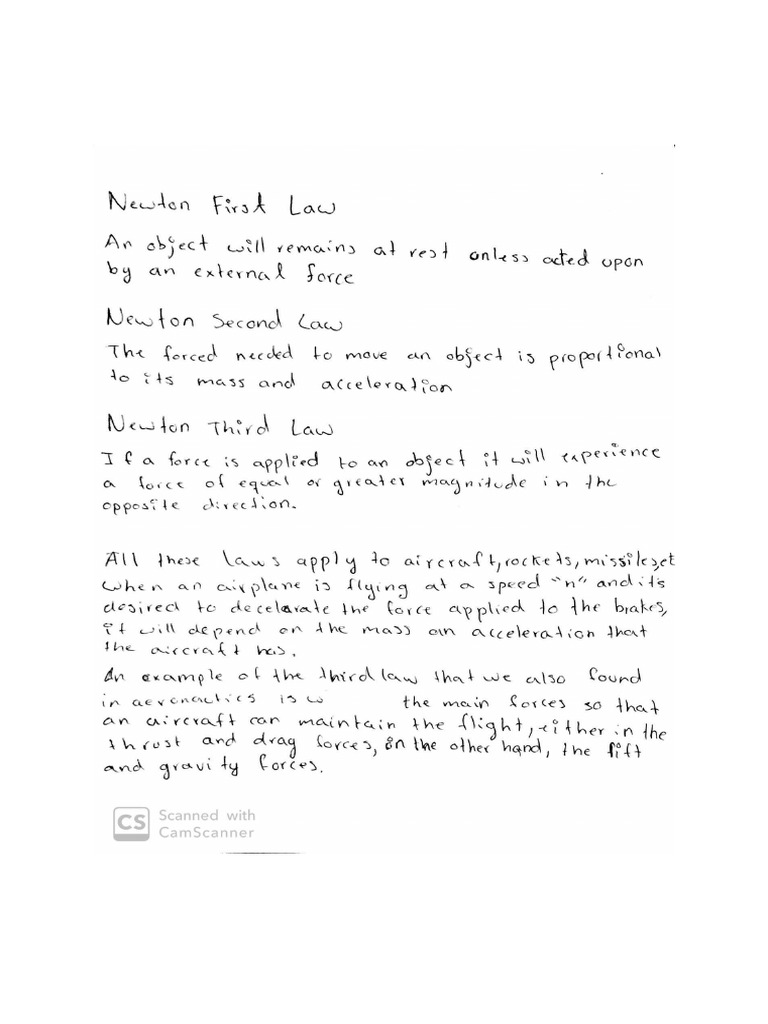 Newton First Law
An object will remains at rest unless acted upon
by an external force
Newton Second Law
The forced needed to move an object is proportional
to its mass and acceleration
Newton Third Law
If a force is applied to an object it will experience
a force of equal or greater magnitude in the
opposite direction.
All these laws apply to aircraft, rockets, missiles,et
when an airplane is flying at a speed "n" and its
desired to decelarate the force applied to the brakes,
it will depend on the mass an acceleration that
the aircraft has.
An example of the third law that we also found
in aeronautics is the main forces so that
an aircraft can maintain the flight, either in the
thrust and drag forces, on the other hand, the lift
and gravity forces.
CS Scanned with
CamScanner